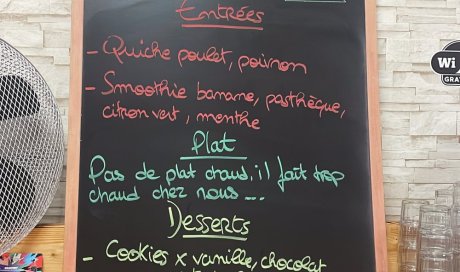 Entrées
- Quiche poulet, poivron
- Smoothie banane, pasthèque,
citron vert, menthe
Plat
Pas de plat chaud, il fait trop
chaud chez nous ...
Desserts
- Cookies x vanille, chocolat
Wi
GRA